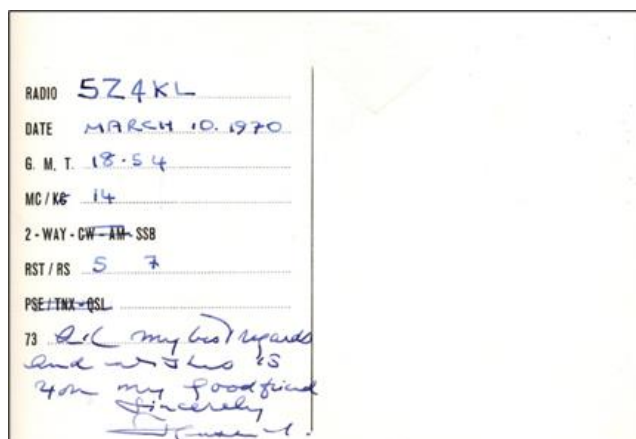 RADIO 5Z4KL
DATE MARCH 10. 1970
G. M. T. 18.54
MC / KC 14
2 - WAY - CW - AM - SSB
RST / RS 5 7
PSE / TNX - QSL
73 All my best regards
and wishes to
you my good friend
Sincerely